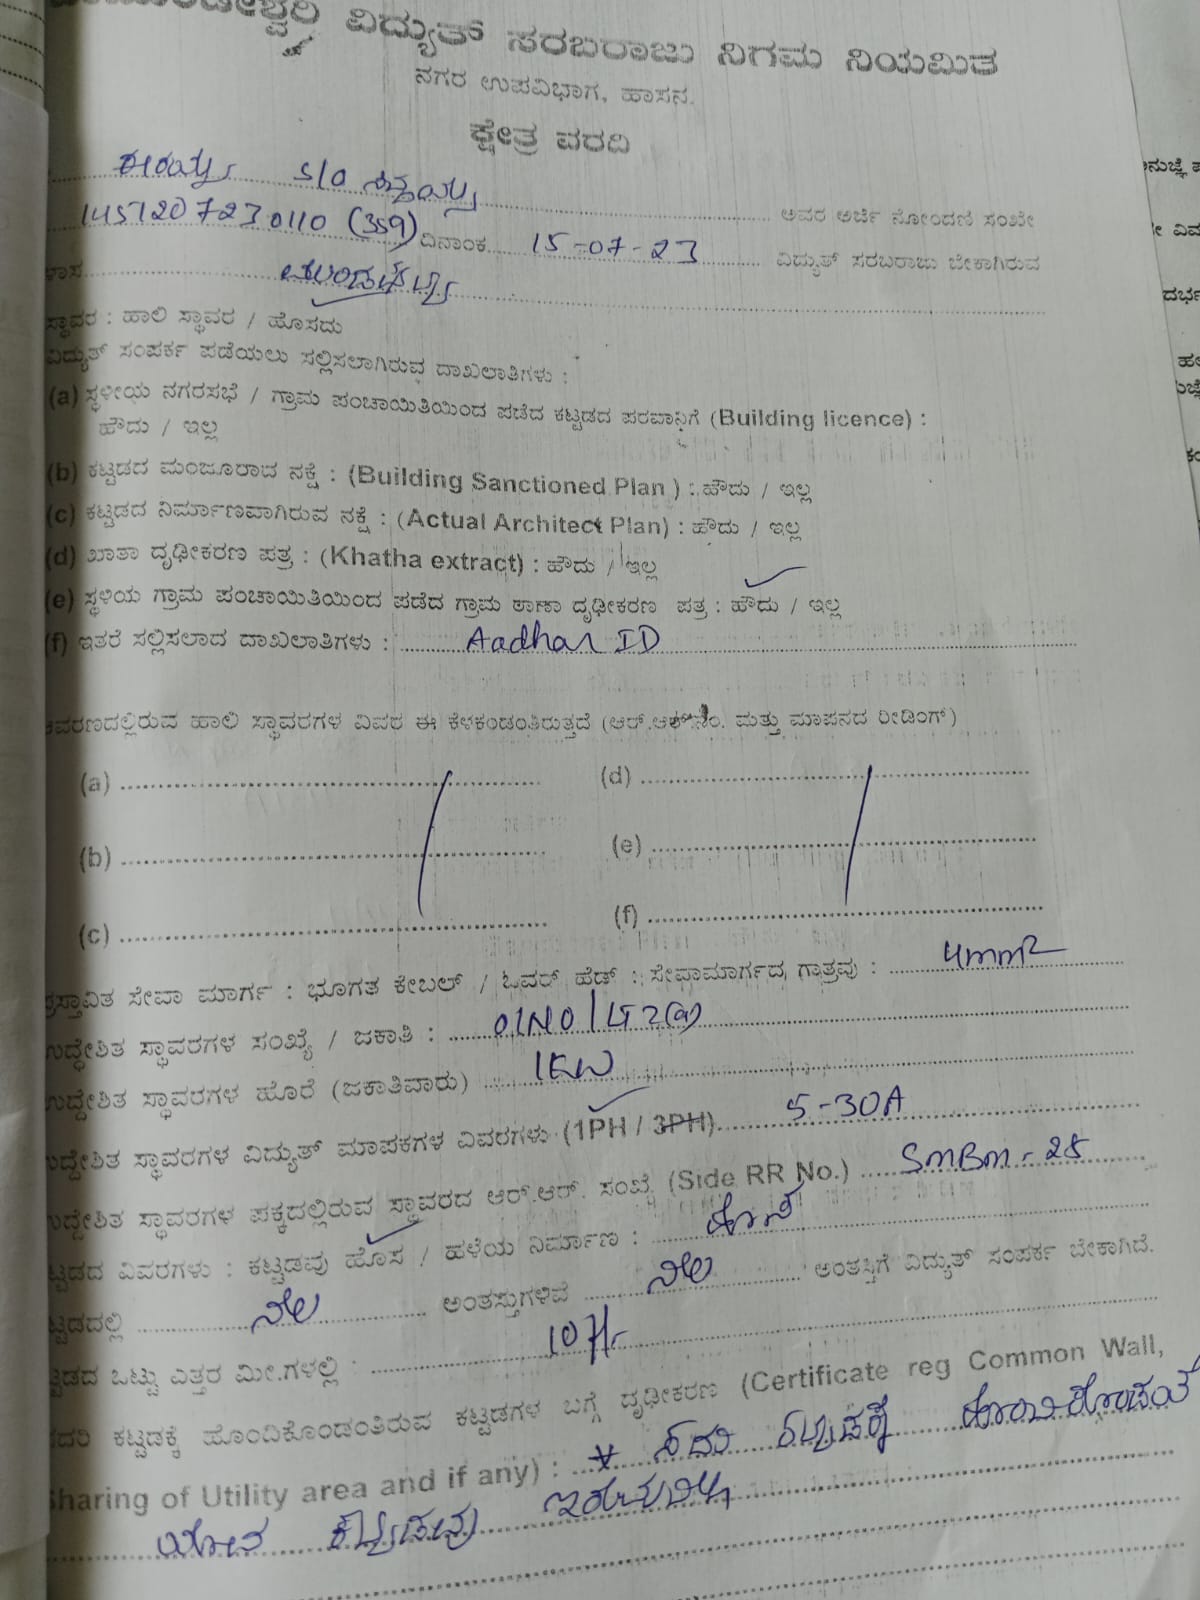 ವಿದ್ಯುತ್ ಸರಬರಾಜು ನಿಗಮ ನಿಯಮಿತ
ನಗರ ಉಪವಿಭಾಗ, ಹಾಸನ.
ಕ್ಷೇತ್ರ ವರದಿ
S/O
ಅವರ ಅರ್ಜಿ ನೋಂದಣಿ ಸಂಖೇ
1451207230110 (359) ದಿನಾಂಕ 15-07-23 ವಿದ್ಯುತ್ ಸರಬರಾಜು ಬೇಕಾಗಿರುವ
ಸ್ಥಾವರ : ಹಾಲಿ ಸ್ಥಾವರ / ಹೊಸದು
ವಿದ್ಯುತ್ ಸಂಪರ್ಕ ಪಡೆಯಲು ಸಲ್ಲಿಸಲಾಗಿರುವ ದಾಖಲಾತಿಗಳು :
(a) ಸ್ಥಳೀಯ ನಗರಸಭೆ / ಗ್ರಾಮ ಪಂಚಾಯಿತಿಯಿಂದ ಪಡೆದ ಕಟ್ಟಡದ ಪರವಾನಿಗೆ (Building licence) :
ಹೌದು / ಇಲ್ಲ
(b) ಕಟ್ಟಡದ ಮಂಜೂರಾದ ನಕ್ಷೆ : (Building Sanctioned Plan ) : ಹೌದು / ಇಲ್ಲ
(c) ಕಟ್ಟಡದ ನಿರ್ಮಾಣವಾಗಿರುವ ನಕ್ಷೆ : (Actual Architect Plan) : ಹೌದು / ಇಲ್ಲ
(d) ಖಾತಾ ದೃಢೀಕರಣ ಪತ್ರ : (Khatha extract) : ಹೌದು / ಇಲ್ಲ
(e) ಸ್ಥಳಿಯ ಗ್ರಾಮ ಪಂಚಾಯಿತಿಯಿಂದ ಪಡೆದ ಗ್ರಾಮ ಠಾಣಾ ದೃಢೀಕರಣ ಪತ್ರ : ಹೌದು / ಇಲ್ಲ
(f) ಇತರೆ ಸಲ್ಲಿಸಲಾದ ದಾಖಲಾತಿಗಳು : Aadhar ID
ಆವರಣದಲ್ಲಿರುವ ಹಾಲಿ ಸ್ಥಾವರಗಳ ವಿವರ ಈ ಕೆಳಕಂಡಂತಿರುತ್ತದೆ (ಆರ್.ಆರ್.ನಂ. ಮತ್ತು ಮಾಪನದ ರೀಡಿಂಗ್)
(a) (d)
(b) (e)
(c) (f)
ಪ್ರಸ್ತಾವಿತ ಸೇವಾ ಮಾರ್ಗ : ಭೂಗತ ಕೇಬಲ್ / ಓವರ್ ಹೆಡ್ : ಸೇವಾಮಾರ್ಗದ ಗಾತ್ರವು : 4mm2
ಉದ್ದೇಶಿತ ಸ್ಥಾವರಗಳ ಸಂಖ್ಯೆ / ಜಕಾತಿ : 01NO/LT2(a)
ಉದ್ದೇಶಿತ ಸ್ಥಾವರಗಳ ಹೊರೆ (ಜಕಾತಿವಾರು) 1KW
ಉದ್ದೇಶಿತ ಸ್ಥಾವರಗಳ ವಿದ್ಯುತ್ ಮಾಪಕಗಳ ವಿವರಗಳು (1PH / 3PH) 5-30A
ಉದ್ದೇಶಿತ ಸ್ಥಾವರಗಳ ಪಕ್ಕದಲ್ಲಿರುವ ಸ್ಥಾವರದ ಆರ್.ಆರ್. ಸಂಖ್ಯೆ (Side RR No.) SMBM-25
ಕಟ್ಟಡದ ವಿವರಗಳು : ಕಟ್ಟಡವು ಹೊಸ / ಹಳೆಯ ನಿರ್ಮಾಣ : ಹೊಸ
ಕಟ್ಟಡದಲ್ಲಿ ನೆಲ ಅಂತಸ್ತುಗಳಿವೆ ನೆಲ ಅಂತಸ್ತಿಗೆ ವಿದ್ಯುತ್ ಸಂಪರ್ಕ ಬೇಕಾಗಿದೆ.
ಕಟ್ಟಡದ ಒಟ್ಟು ಎತ್ತರ ಮೀ.ಗಳಲ್ಲಿ :
ಸದರಿ ಕಟ್ಟಡಕ್ಕೆ ಹೊಂದಿಕೊಂಡಂತಿರುವ ಕಟ್ಟಡಗಳ ಬಗ್ಗೆ ದೃಢೀಕರಣ (Certificate reg Common Wall,
Sharing of Utility area and if any) : * ಸದರಿ ಕಟ್ಟಡಕ್ಕೆ ಹೊಂದಿಕೊಂಡಂತೆ
ಯಾವ ಕಟ್ಟಡವು ಇರುವುದಿಲ್ಲ